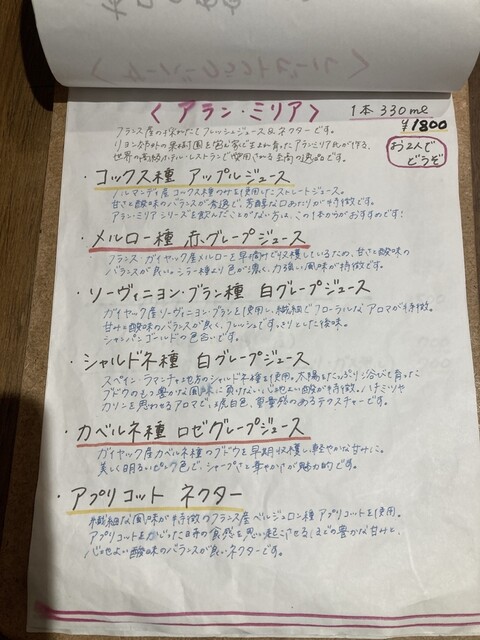 〈アラン・ミリア〉 1本 330ml
¥1800
お2人で
どうぞ
フランス産の採れたてフレッシュジュース&ネクターです。
リヨン郊外の果樹園を営む家で生まれ育ったアラン・ミリア氏が作る、
世界の高級ホテル・レストランで使用される至高の逸品です。
・コックス種 アップルジュース
ノルマンディ産コックス種のみを使用したストレートジュース。
甘さと酸味のバランスが秀逸で、芳醇な口あたりが特徴です。
アラン・ミリアシリーズを飲んだことがない方は、この1本からがおすすです!
・メルロー種 赤グレープジュース
フランス ガイヤック産メルローを早摘みで収穫しているため、甘さと酸味の
バランスが良い。シラー種より色が濃く、力強い風味が特徴です。
・ソーヴィニヨン・ブラン種 白グレープジュース
ガイヤック産ソーヴィニヨン・ブランを使用し、繊細でフローラルなアロマが特徴。
甘みと酸味のバランスが良く、フレッシュですっきりとした後味。
シャンパンゴールドの色合いです。
・シャルドネ種 白グレープジュース
スペイン・ラマンチャ地方のシャルドネ種を使用。太陽をたっぷり浴びて育った
ブドウのもつ豊かな風味に負けない心地よい酸が特徴。ハチミツや
カリンを思わせるアロマで、琥珀色、重量感のあるテクスチャーです。
・カベルネ種 ロゼグレープジュース
ガイヤック産カベルネ種のブドウを早期収穫し、軽やかな甘みに。
美しく明るいピンク色で、シャープさと華やかさが魅力的です。
・アプリコット ネクター
繊細な風味が特徴のフランス産ベルジュロン種アプリコットを使用。
アプリコットをかじった時の食感を思い起こさせるほどの豊かな甘みと、
心地よい酸味のバランスが良いネクターです。